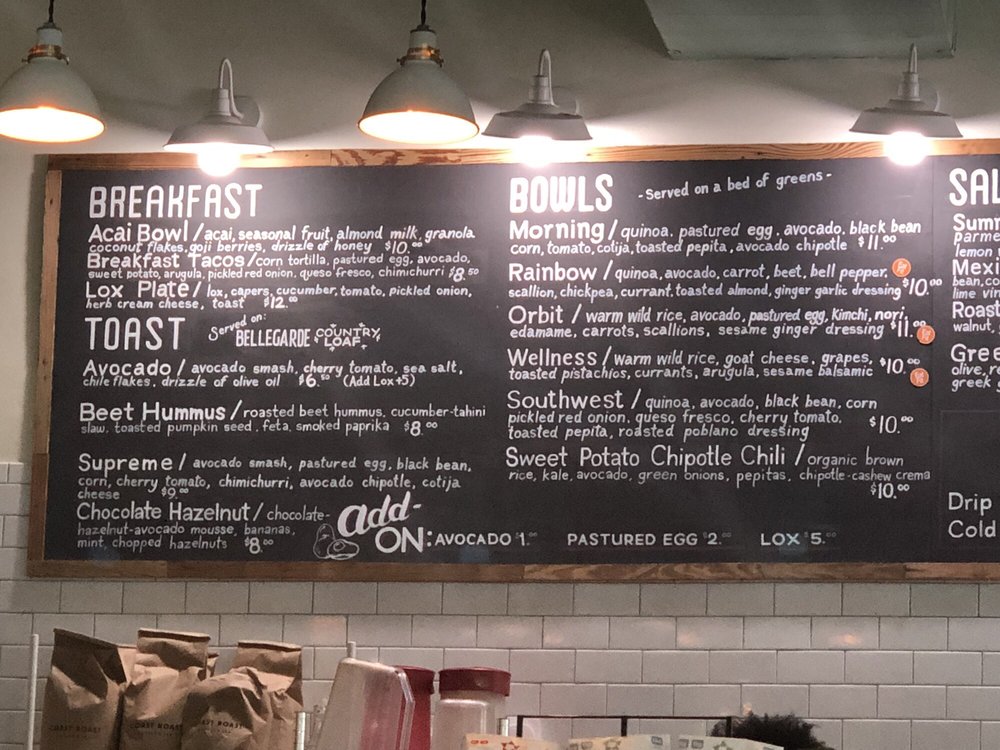 BREAKFAST
Acai Bowl / acai, seasonal fruit, almond milk, granola
coconut flakes, goji berries, drizzle of honey $10.00
Breakfast Tacos / corn tortilla, pastured egg, avocado,
sweet potato, arugula, pickled red onion, queso fresco, chimichurri $8.50
Lox Plate / lox, capers, cucumber, tomato, pickled onion,
herb cream cheese, toast $12.00
TOAST Served on: BELLEGARDE COUNTRY LOAF
Avocado / avocado smash, cherry tomato, sea salt,
chile flakes, drizzle of olive oil $6.50 (Add Lox+5)
Beet Hummus / roasted beet hummus, cucumber-tahini
slaw, toasted pumpkin seed, feta, smoked paprika $8.00
Supreme / avocado smash, pastured egg, black bean,
corn, cherry tomato, chimichurri, avocado chipotle, cotija
cheese $9.00
Chocolate Hazelnut / chocolate-
hazelnut-avocado mousse, bananas,
mint, chopped hazelnuts $8.00
BOWLS - Served on a bed of greens -
Morning / quinoa, pastured egg, avocado, black bean
corn, tomato, cotija, toasted pepita, avocado chipotle $11.00
Rainbow / quinoa, avocado, carrot, beet, bell pepper,
scallion, chickpea, currant, toasted almond, ginger garlic dressing $10.00
Orbit / warm wild rice, avocado, pastured egg, kimchi, nori,
edamame, carrots, scallions, sesame ginger dressing $11.00
Wellness / warm wild rice, goat cheese, grapes,
toasted pistachios, currants, arugula, sesame balsamic $10.00
Southwest / quinoa, avocado, black bean, corn
pickled red onion, queso fresco, cherry tomato,
toasted pepita, roasted poblano dressing $10.00
Sweet Potato Chipotle Chili / organic brown
rice, kale, avocado, green onions, pepitas, chipotle-cashew crema
$10.00
add-
ON: AVOCADO $1.00 PASTURED EGG $2.00 LOX $5.00
SAL
Summ
parme
lemon
Mexi
bean, co
lime vin
Roast
walnut,
Gree
olive, re
greek
Drip
Cold
COAST ROAST